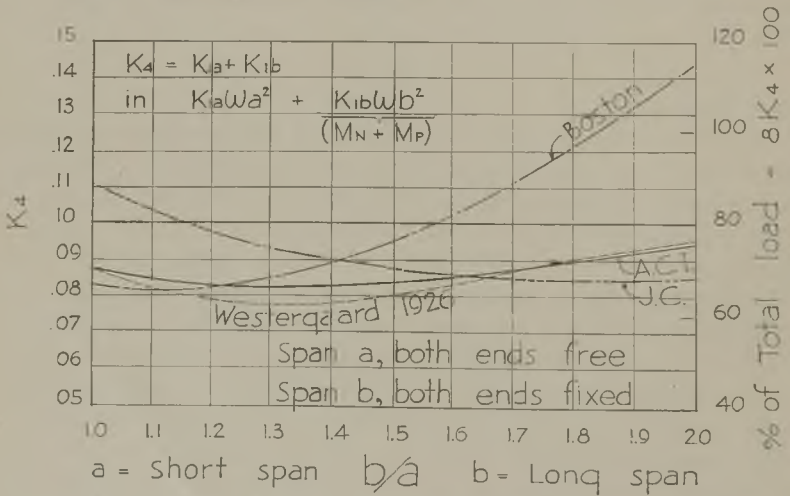 .15
.14
.13
.12
.11
.10
.09
.08
.07
.06
.05
K4
K4 = K1a + K1b
in K1aωa² + K1bωb²
(MN + MP)
Boston
A.C.I.
J.C.
Westergaard 1926
Span a, both ends free
Span b, both ends fixed
120
100
80
60
40
% of Total load = 8K4 × 100
1.0 1.1 1.2 1.3 1.4 1.5 1.6 1.7 1.8 1.9 2.0
a = Short span b/a b = Long span